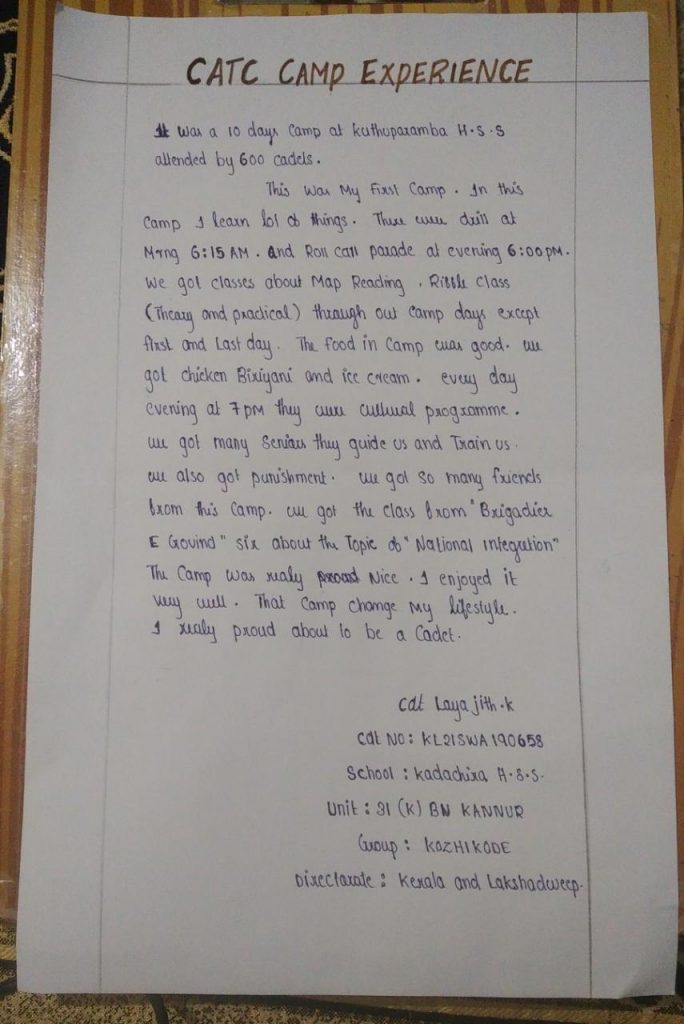 CATC CAMP EXPERIENCE
It was a 10 days Camp at Kuthuparamba H.S.S
attended by 600 cadets.
This was My First Camp. In this
Camp I learn lot of things. There were drill at
Mrng 6:15 AM. and Roll call parade at evening 6:00 pm.
we got classes about Map Reading, Rifle class
(Theary and practical) through out camp days except
first and Last day. The food in camp was good. we
got chicken Biriyani and ice cream. every day
evening at 7 pm they were cultural programme.
we got many seniors they guide us and Train us.
we also got punishment. we got so many friends
from this Camp. we got the class from "Brigadier
E Govind" sir about the Topic of "National integration"
The Camp was realy Nice. I enjoyed it
very well. That Camp change My lifestyle.
I realy proud about to be a Cadet.
Cdt Layajith.K
Cdt NO: KL21SWA190658
School: Kadachira H.S.S.
Unit: 31 (K) BN KANNUR
Group: KOZHIKODE
Directarate: Kerala and Lakshadweep.